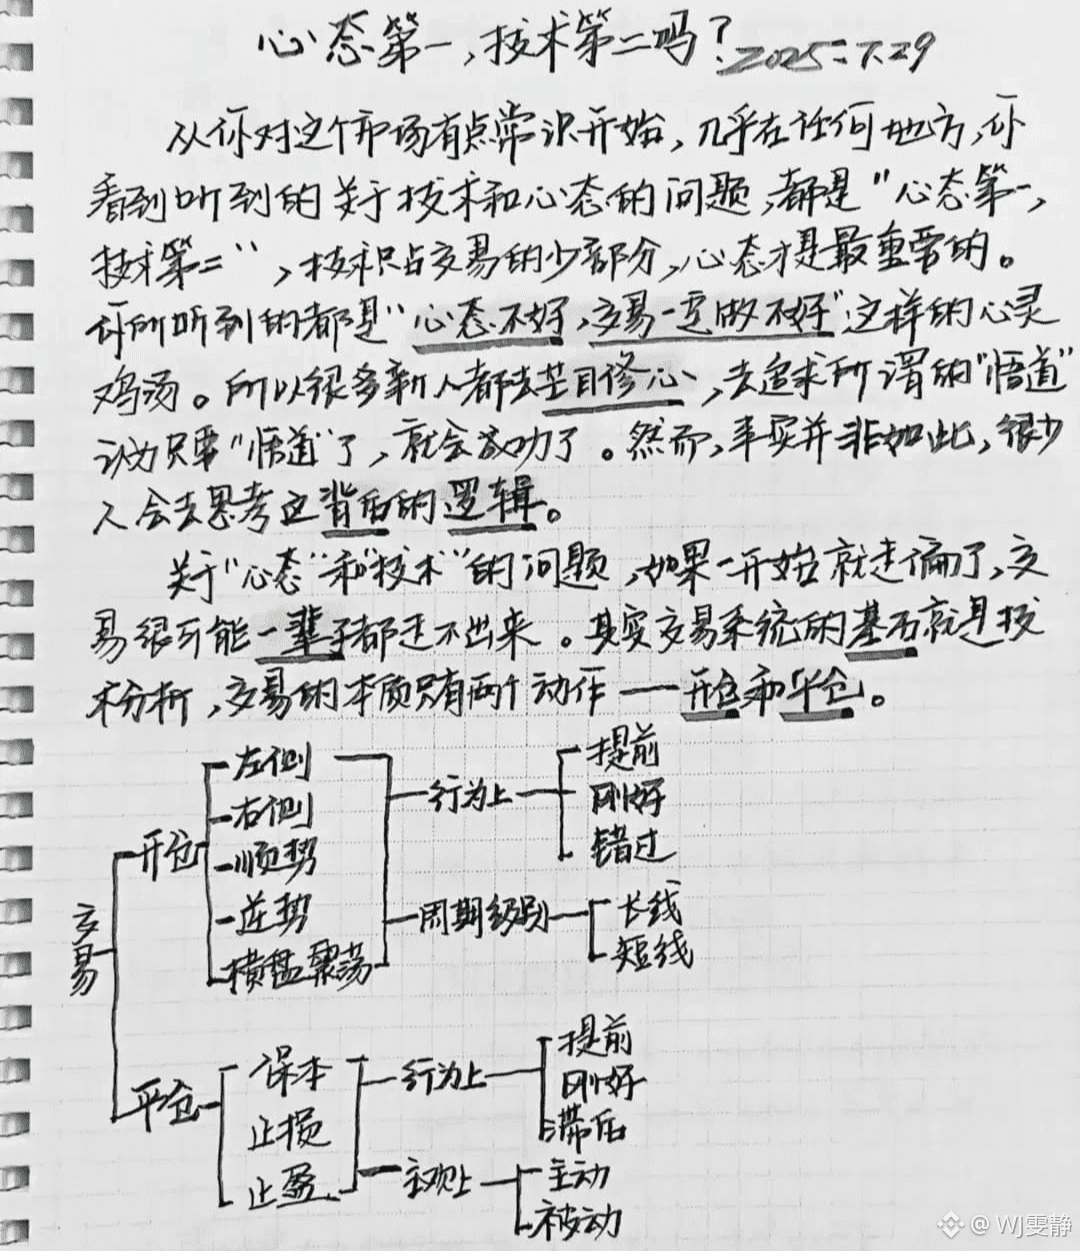 心态第一,技术第二吗?2025.7.29
从你对这个市场有点常识开始,几乎在任何地方,你
看到听到的关于技术和心态的问题,都是"心态第一,
技术第二",技术只占交易的少部分,心态才是最重要的。
你所听到的都是"心态不好,交易一定做不好"这样的心灵
鸡汤。所以很多新人都去盲目修心,去追求所谓的"悟道"
认为只要"悟道"了,就会成功了。然而,事实并非如此,很少
人会去思考这背后的逻辑。
关于"心态"和"技术"的问题,如果一开始就走偏了,交
易很可能一辈子都走不出来。其实交易系统的基石就是技
术分析,交易的本质只有两个动作——开仓和平仓。
交易
开仓
左侧
右侧
顺势
逆势
横盘震荡
行为上
提前
刚好
错过
周期级别
长线
短线
平仓
保本
止损
止盈
行为上
提前
刚好
滞后
主观上
主动
被动
@WJ雯静